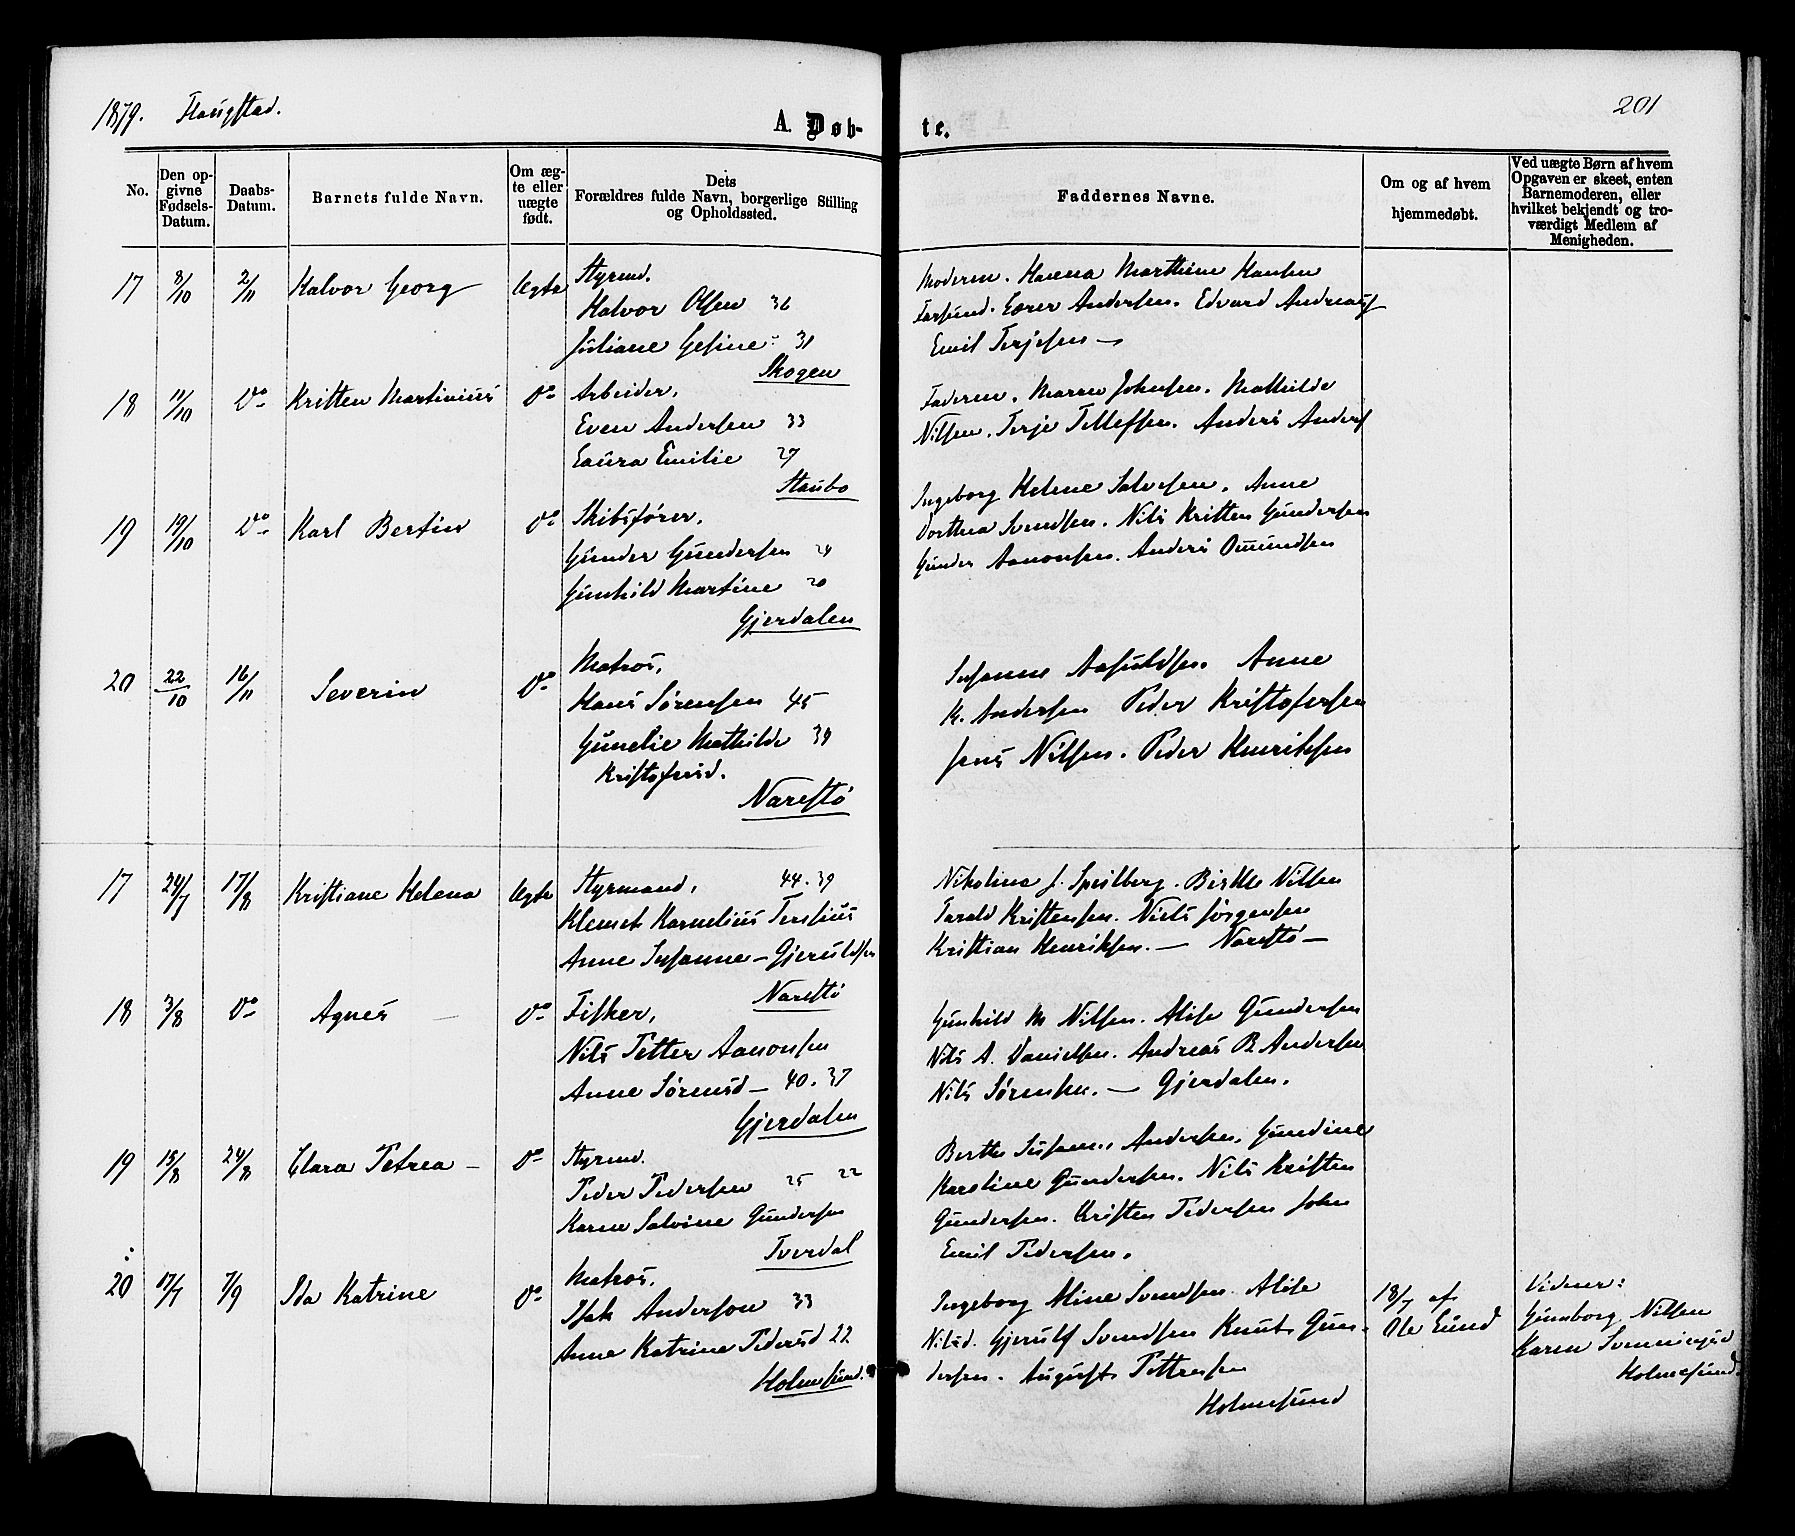 1879. Flangstad.
201
A. Døb-
te.
No.
Den op-
givne
Fødsels-
Datum.
Daabs-
Datum.
Barnets fulde Navn.
Om æg-
te eller
uægte
født.
Dets
Forældres fulde Navn, borgerlige Stilling
og Opholdssted.
Faddernes Navne.
Om og af hvem
hjemmedøbt.
Ved uægte Børn af hvem
Opgaven er skeet, enten
Barnemoderen, eller
hvilket bekjendt og tro-
værdigt Medlem af
Menigheden.
17 8/10 2/11 Halvor Georg Ægte Styrmd.
Halvor Olsen 36
Juliane Gesine 31
Skogen
Moderen. Hanna Marthine Hansen
Farsund. Lærer Andersen. Edvard Andreas
Emil Terjesen —
18 11/10 Do Kristen Martinius Do Arbeider,
Even Andersen 33
Laura Emilie 27
Staubo
Faderen. Maren Johnsen. Mathilde
Nilsen. Terje Tellefsen. Anders Anders
19 19/10 Do Karl Bertin Do Skibsfører,
Gunder Gundersen 24
Gunhild Martine 20
Gjerdalen
Ingeborg Helene Salvesen. Anne
Dorthea Svendsen. Nils Kristen Gundersen
Gunder Aanonsen. Anders Omundsen
20 22/10 16/11 Severin Do Matros,
Hans Sørensen 45
Gunelie Mathilde 39
Kristofersd.
Narestø
Susanne Aasuldsen. Anne
K. Andersen Peder Kristofersen
Jens Nilsen. Peder Henriksen
17 24/7 17/8 Kristiane Helena Ægte Styrmand, 44. 39
Klemet Kornelius Tersius
Anne Susanne — Gjeruldsen
Narestø
Nikoline J. Speilberg. Birthe Nilsen
Tarald Kristensen. Niels Jørgensen
Kristian Henriksen. — Narestø —
18 3/8 Do Agnes Do Fisker,
Nils Petter Aanonsen
Anne Sørensd — 40. 37
Gjerdalen
Gunhild M Nilsen. Alise Gundersen
Nils A. Danielsen. Andreas B. Andersen
Nils Sørensen. — Gjerdalen.
19 15/8 24/8 Clara Petrea — Do Styrmd.
Peder Pedersen 25 22
Karen Salvine Gundersen
Tverdal
Berthe Susanne Andersen, Gundine
Karoline Gundersen. Nils Kristen
Gundersen. Kristen Pedersen John
Emil Pedersen.
20 17/7 7/9 Ida Katrine Do Matros,
Isak Anderson 33
Anne Katrine Pedersd 22
Holmesund.
Ingeborg Mine Svendsen. Alise
Nilsd. Gjerulf Svendsen Knut Gun-
dersen. August Pettersen
Holmesund
18/7 af
Ole Lund
Vidner:
Gunnborg Nilsen
Karen
Holmesund.